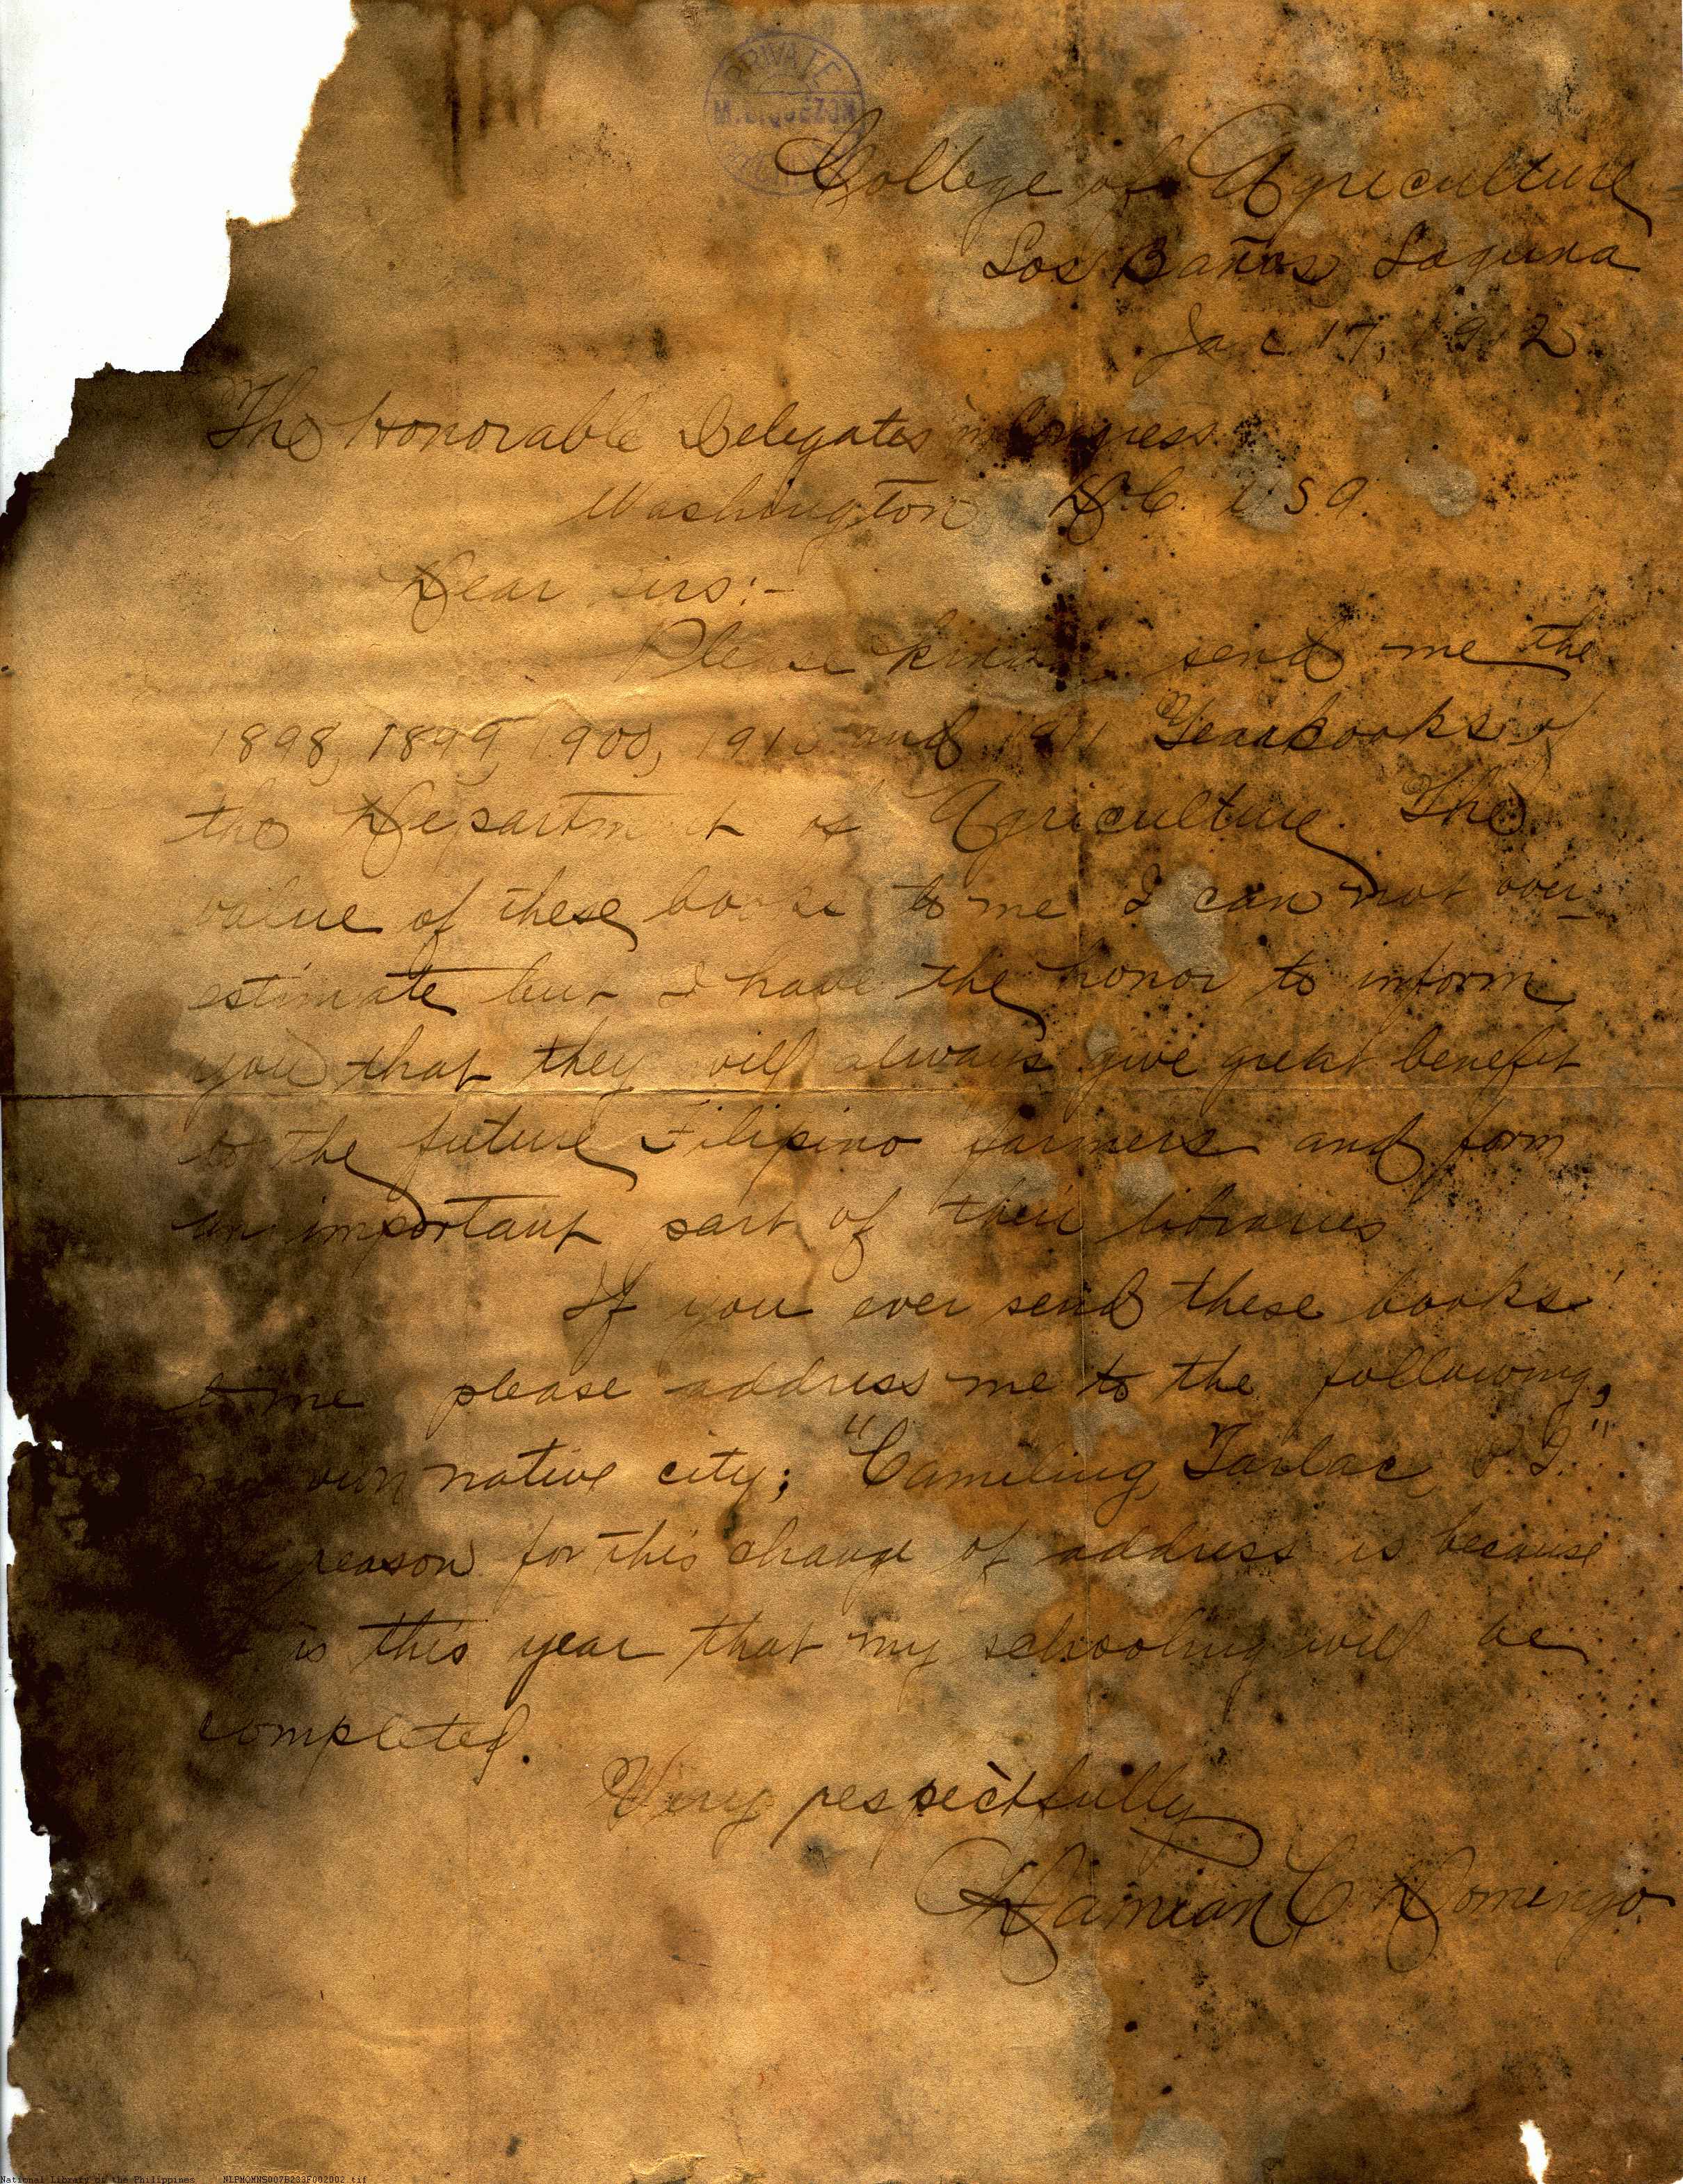 PRIVATE
M. L. QUEZON
College of Agriculture
Los Baños Laguna
Jan 17, 1912
The Honorable Delegates in Congress
Washington D.C. U S A.
Dear sirs:-
Please kindly send me the
1898, 1899, 1900, and 1911 Yearbooks of
the Department of Agriculture. The
value of these books to me I can not over-
estimate but I have the honor to inform
you that they will always give great benefit
to the future Filipino farmers and form
an important part of their libraries
If you ever send these books
to me please address me to the following,
my own native city; "Camiling, Tarlac, P.I."
The reason for this change of address is because
it is this year that my schooling will be
completed.
Very respectfully
Damian C Domingo.
National Library of the Philippines NLPMQMNS007B233F002002.tif